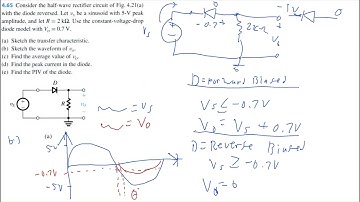 4.65 Consider the half-wave rectifier circuit of Fig. 4.21(a)
with the diode reversed. Let vs be a sinusoid with 5-V peak
amplitude, and let R = 2 kΩ. Use the constant-voltage-drop
diode model with VD = 0.7 V.
(a) Sketch the transfer characteristic.
(b) Sketch the waveform of vo.
(c) Find the average value of vo.
(d) Find the peak current in the diode.
(e) Find the PIV of the diode.
D
vs
R
vo
(a)
= Vs
= Vo
b)
5V
-0.7V
-5V
θ
Vs
-0.7+
2kΩ
-1V
0
D=Forward Biased
Vs ≤ -0.7V
Vo = Vs + 0.7V
D=Reverse Biased
Vs ≥ -0.7V
Vo = 0